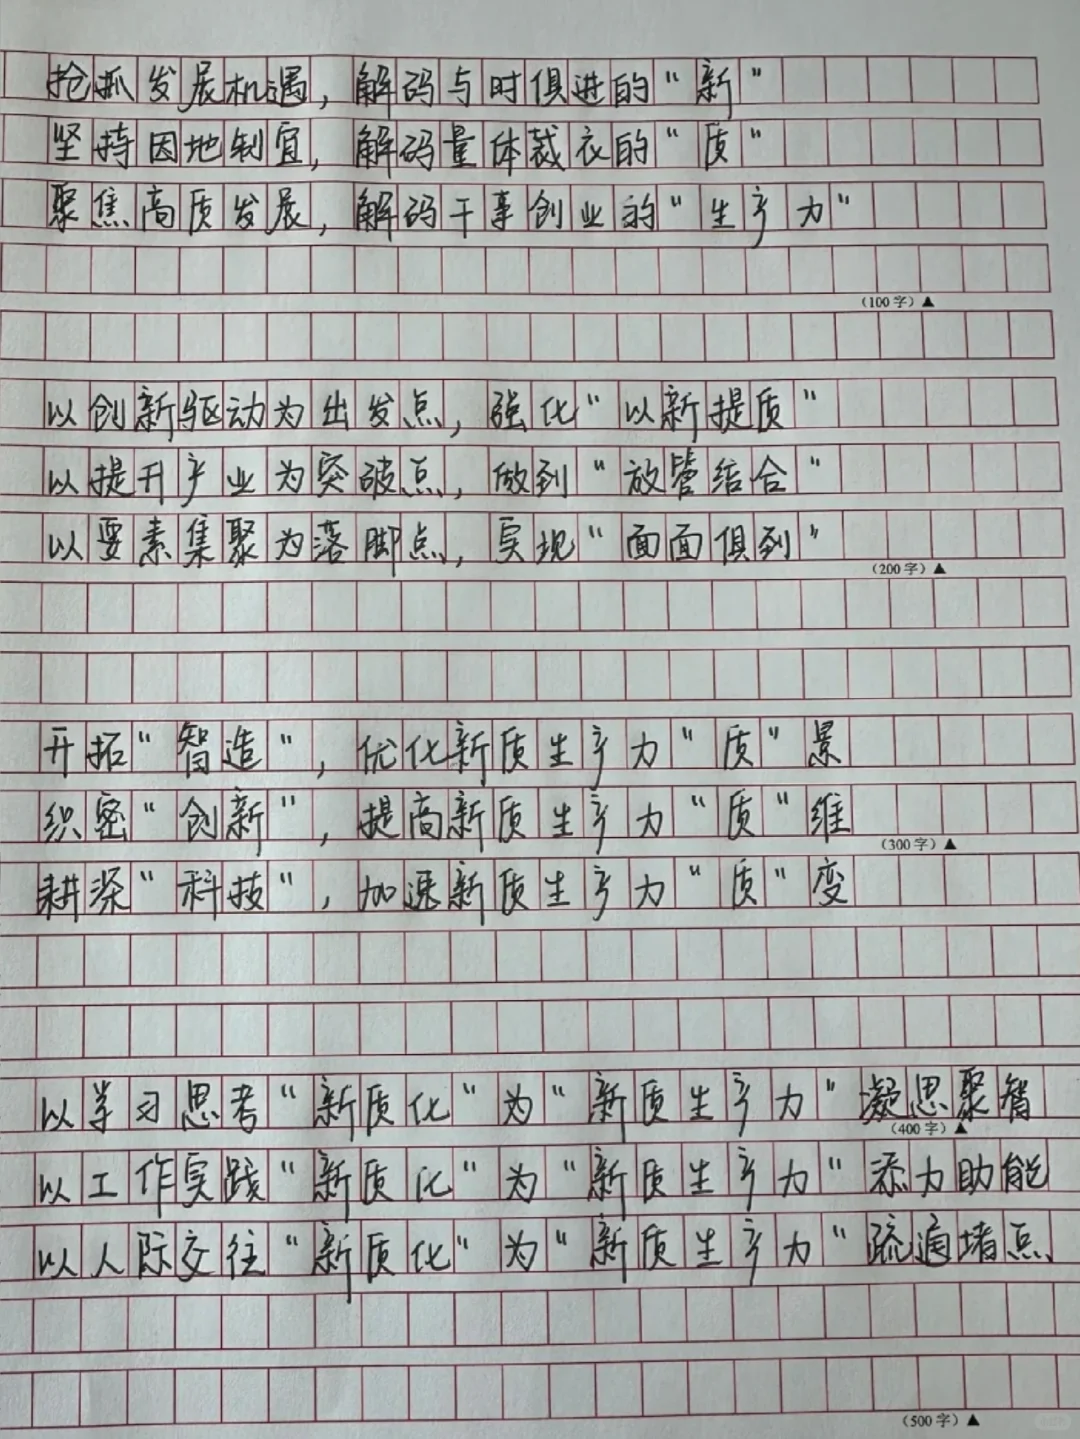 抢抓发展机遇，解码与时俱进的“新”
坚持因地制宜，解码量体裁衣的“质”
聚焦高质发展，解码干事创业的“生产力”
(100字)▲
以创新驱动为出发点，强化“以新提质”
以提升产业为突破点，做到“放管结合”
以要素集聚为落脚点，实现“面面俱到”
(200字)▲
开拓“智造”，优化新质生产力“质”景
织密“创新”，提高新质生产力“质”维
(300字)▲
耕深“科技”，加速新质生产力“质”变
以学习思考“新质化”为“新质生产力”凝思聚智
(400字)▲
以工作实践“新质化”为“新质生产力”添力助能
以人际交往“新质化”为“新质生产力”疏通堵点
(500字)▲